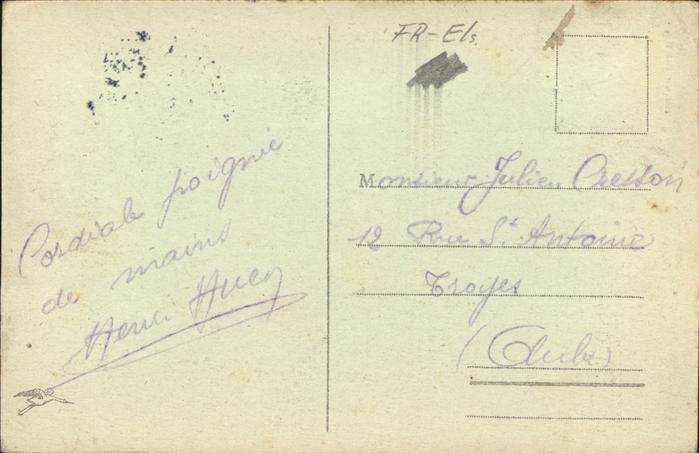 Cordiale poignée
de mains
Henri Hucy
FR-Els
Monsieur Julien Cresson
12 Rue St Antoine
Troyes
(Aube)